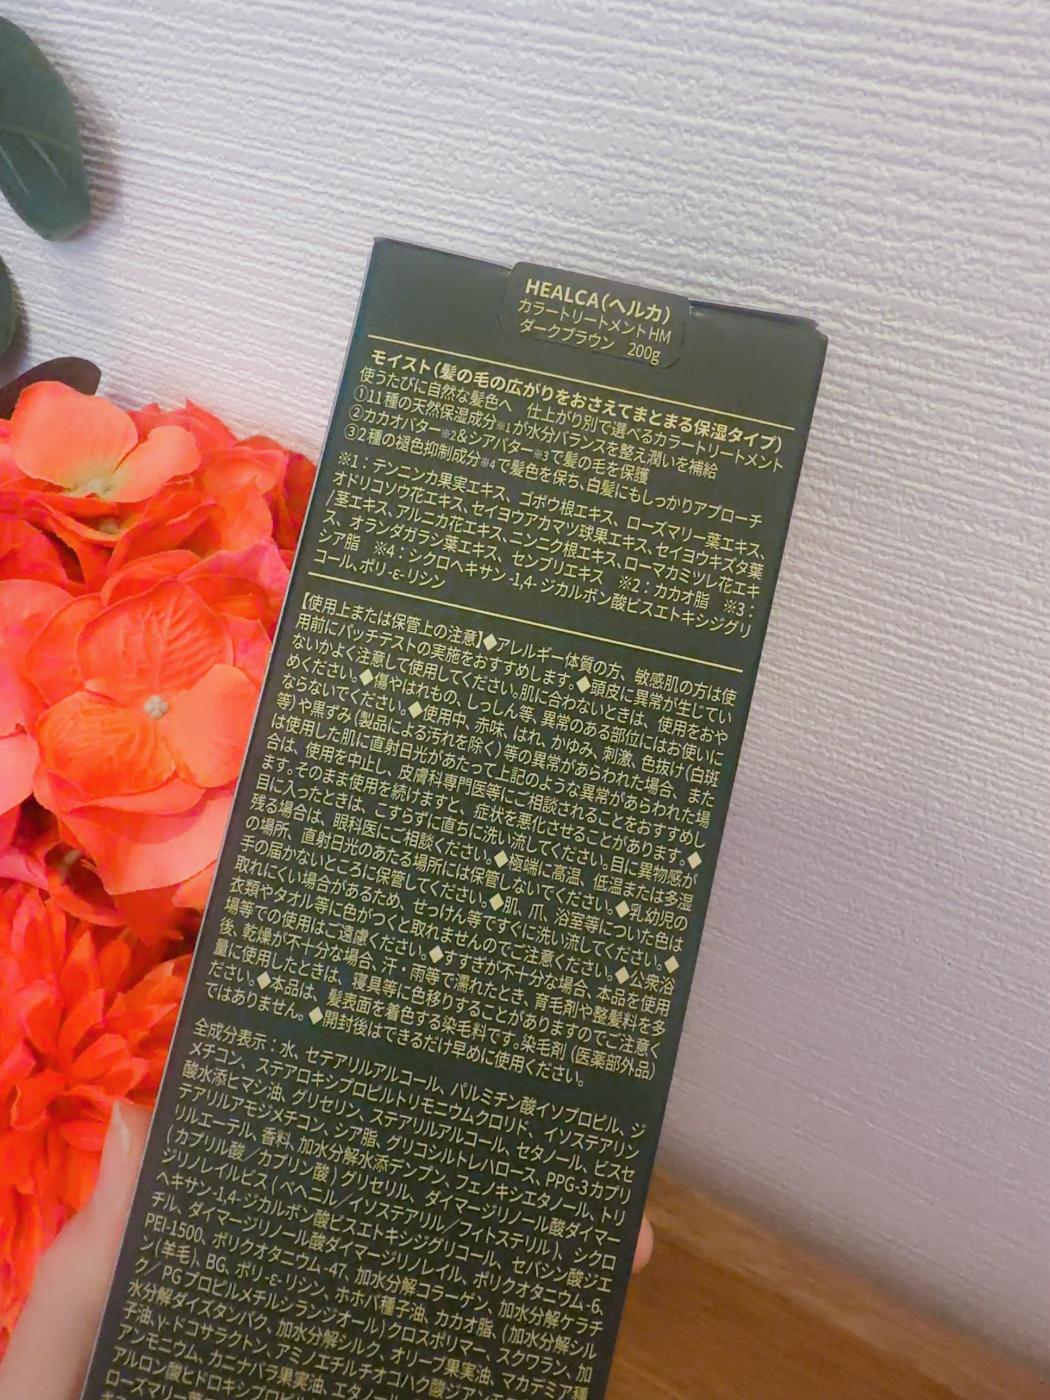 HEALCA(ヘルカ)
カラートリートメントHM
ダークブラウン 200g
モイスト(髪の毛の広がりをおさえてまとまる保湿タイプ)
使うたびに自然な髪色へ 仕上がり別で選べるカラートリートメント
①11種の天然保湿成分※1が水分バランスを整え潤いを補給
②カカオバター※2&シアバター※3で髪の毛を保護
③2種の褪色抑制成分※4で髪色を保ち、白髪にもしっかりアプローチ
※1:テンニンカ果実エキス、ゴボウ根エキス、ローズマリー葉エキス、
オドリコソウ花エキス、セイヨウアカマツ球果エキス、セイヨウキズタ葉
/茎エキス、アルニカ花エキス、ニンニク根エキス、ローマカミツレ花エキ
ス、オランダガラシ葉エキス、センブリエキス ※2:カカオ脂 ※3:
シア脂 ※4:シクロヘキサン-1,4-ジカルボン酸ビスエトキシジグリ
コール、ポリ-ε-リシン
【使用上または保管上の注意】◆アレルギー体質の方、敏感肌の方は使
用前にパッチテストの実施をおすすめします。◆頭皮に異常が生じてい
ないかよく注意して使用してください。肌に合わないときは、使用をおや
めください。◆傷やはれもの、しっしん等、異常のある部位にはお使いに
ならないでください。◆使用中、赤味、はれ、かゆみ、刺激、色抜け(白斑
等)や黒ずみ(製品による汚れを除く)等の異常があらわれた場合、また
は使用した肌に直射日光があたって上記のような異常があらわれた場
合は、使用を中止し、皮膚科専門医等にご相談されることをおすすめし
ます。そのまま使用を続けますと、症状を悪化させることがあります。◆
目に入ったときは、こすらずに直ちに洗い流してください。目に異物感が
残る場合は、眼科医にご相談ください。◆極端に高温、低温または多湿
の場所、直射日光のあたる場所には保管しないでください。◆乳幼児の
手の届かないところに保管してください。◆肌、爪、浴室等についた色は
取れにくい場合があるため、せっけん等ですぐに洗い流してください。◆
衣類やタオル等に色がつくと取れませんのでご注意ください。◆公衆浴
場等での使用はご遠慮ください。◆すすぎが不十分な場合、本品を使用
後、乾燥が不十分な場合、汗・雨等で濡れたとき、育毛剤や整髪料を多
量に使用したときは、寝具等に色移りすることがありますのでご注意く
ださい。◆本品は、髪表面を着色する染毛料です。染毛剤(医薬部外品)
ではありません。◆開封後はできるだけ早めに使用ください。
全成分表示:水、セテアリルアルコール、パルミチン酸イソプロピル、ジ
メチコン、ステアロキシプロピルトリモニウムクロリド、イソステアリン
酸水添ヒマシ油、グリセリン、ステアリルアルコール、セタノール、ビスセ
テアリルアモジメチコン、シア脂、グリコシルトレハロース、PPG-3カプリ
リルエーテル、香料、加水分解水添デンプン、フェノキシエタノール、トリ
(カプリル酸/カプリン酸)グリセリル、ダイマージリノール酸ダイマー
ジリノレイルビス(ベヘニル/イソステアリル/フィトステリル)、シクロ
ヘキサン-1,4-ジカルボン酸ビスエトキシジグリコール、セバシン酸ジエ
チル、ダイマージリノール酸ダイマージリノレイル、ポリクオタニウム-6、
PEI-1500、ポリクオタニウム-47、加水分解コラーゲン、加水分解ケラチ
ン(羊毛)、BG、ポリ-ε-リシン、ホホバ種子油、カカオ脂、(加水分解シル
ク/PGプロピルメチルシランジオール)クロスポリマー、スクワラン、加
水分解ダイズタンパク、加水分解シルク、オリーブ果実油、マカデミア種
子油、γ-ドコサラクトン、アミノエチルチオコハク酸ジアン
アンモニウム、カニナバラ果実油、エタノ
アルロン酸ヒドロキシプロピル
ローズマリー葉